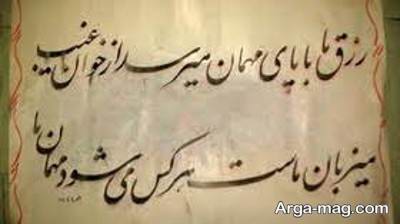 رزق ما با پای مهمان میرسد از خوان غیب
میزبان ماست هر کس می شود مهمان ما
Arga-mag.com